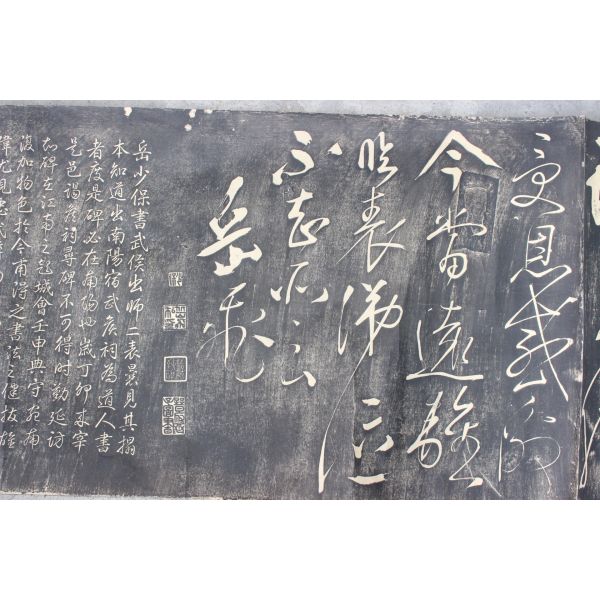 受恩感激
今當遠離
臨表涕
不知所云
岳飛
岳少保書武侯出師二表曩見其搨
本知道出南陽宿武侯祠為道人書
者度是碑必在南陽也歲丁卯來宰
是邑謁侯祠尋碑不可得時勤延訪
知碑在江南之彭城會壬申典守宛南
復加物色於今甫得之書法之健拔雄
偉尤見忠武